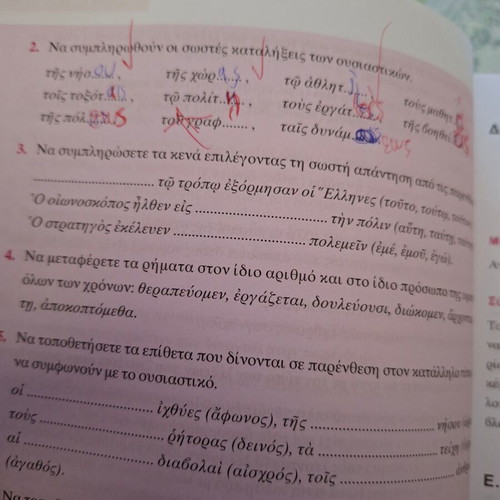 2. Να συμπληρωθούν οι σωστές καταλήξεις των ουσιαστικών.
τῆς νήσ......., τῆς χώρ......., τῷ ἀθλητ.......,
τοῖς τοξότ......., τῷ πολίτ.......η, τοὺς ἐργάτ......., τοὺς μαθητ
τῆς πόλ.......εως, τοῦ γραφ......., ταῖς δυνάμ......., τῆς βοηθεί
3. Να συμπληρώσετε τα κενά επιλέγοντας τη σωστή απάντηση από τις
.......................... τῷ τρόπῳ ἐξόρμησαν οἱ Ἕλληνες (τοῦτο, τούτῳ,
Ὁ οἰωνοσκόπος ἦλθεν εἰς .......................... τὴν πόλιν (αὕτη, ταύτῃ,
Ὁ στρατηγὸς ἐκέλευεν .......................... πολεμεῖν (ἐμέ, ἐμοῦ, ἐγώ).
4. Να μεταφέρετε τα ρήματα στον ίδιο αριθμό και στο ίδιο πρόσωπο της
όλων των χρόνων: θεραπεύομεν, ἐργάζεται, δουλεύουσι, διώκομεν,
τῃ, ἀποκοπτόμεθα.
5. Να τοποθετήσετε τα επίθετα που δίνονται σε παρένθεση στον κατάλληλο
να συμφωνούν με το ουσιαστικό.
οἱ .......................... ἰχθύες (ἄφωνος), τῆς .......................... νήσου
τοὺς .......................... ῥήτορας (δεινός), τὰ .......................... τείχη
αἱ .......................... διαβολαὶ (αἰσχρός), τοῖς ..........................
(ἀγαθός).